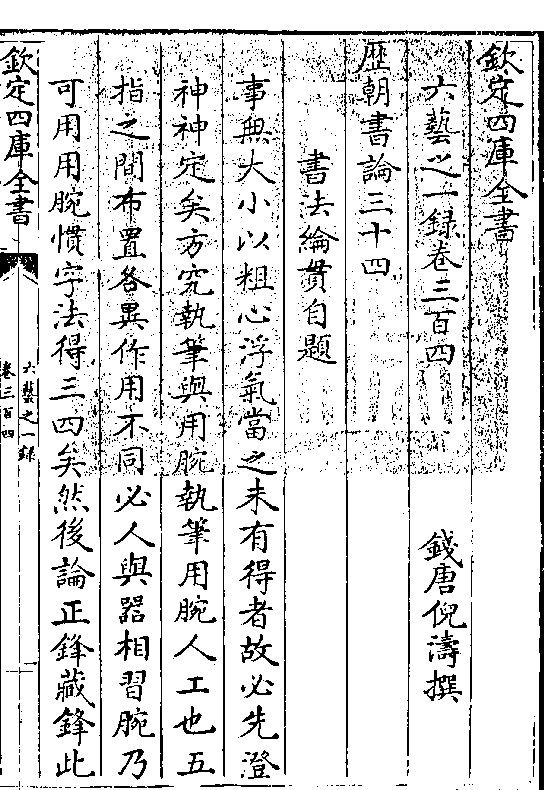 欽定四庫全書
六藝之一録卷三百四
錢唐倪濤撰
歷朝書論三十四
書法綸貫自題
事無大小以粗心浮氣當之未有得者故必先澄
神神定矣方究執筆與用腕執筆用腕人工也五
指之間布置各異作用不同必人與器相習腕乃
可用用腕慣字法得三四矣然後論正鋒藏鋒此
欽定四庫全書
六藝之一録
卷三百四
一